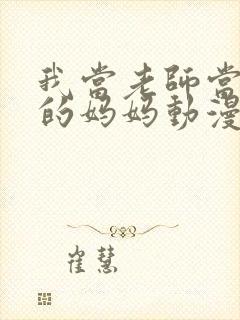 我當老師當
的媽媽動漫
崔慧